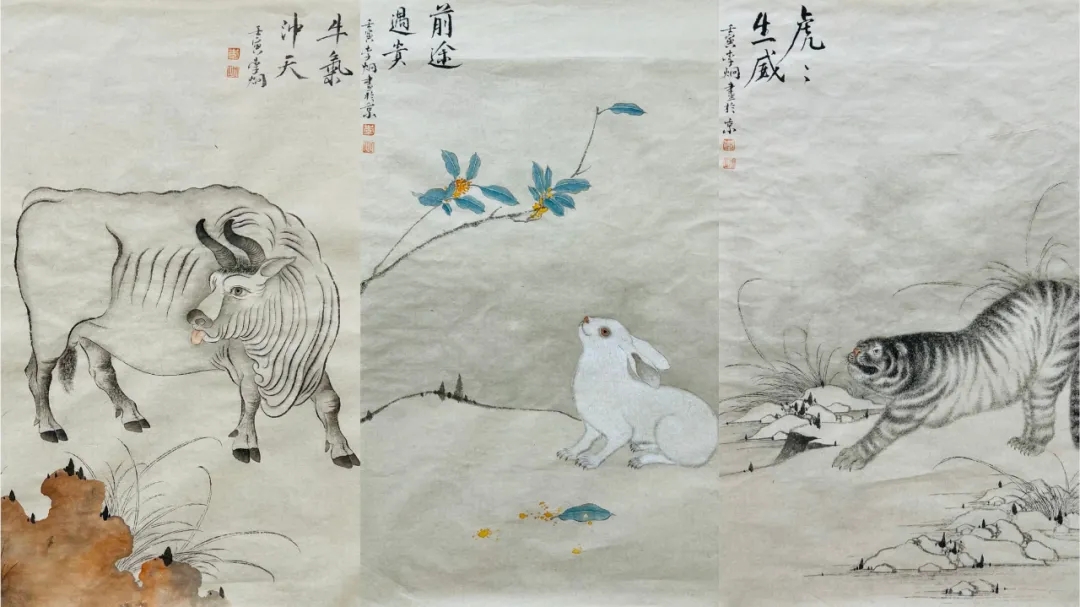 牛氣
沖天
壬寅李炯
前途
遇貴
壬寅李炯畫於京
虎〻
生威
壬寅李炯畫於京